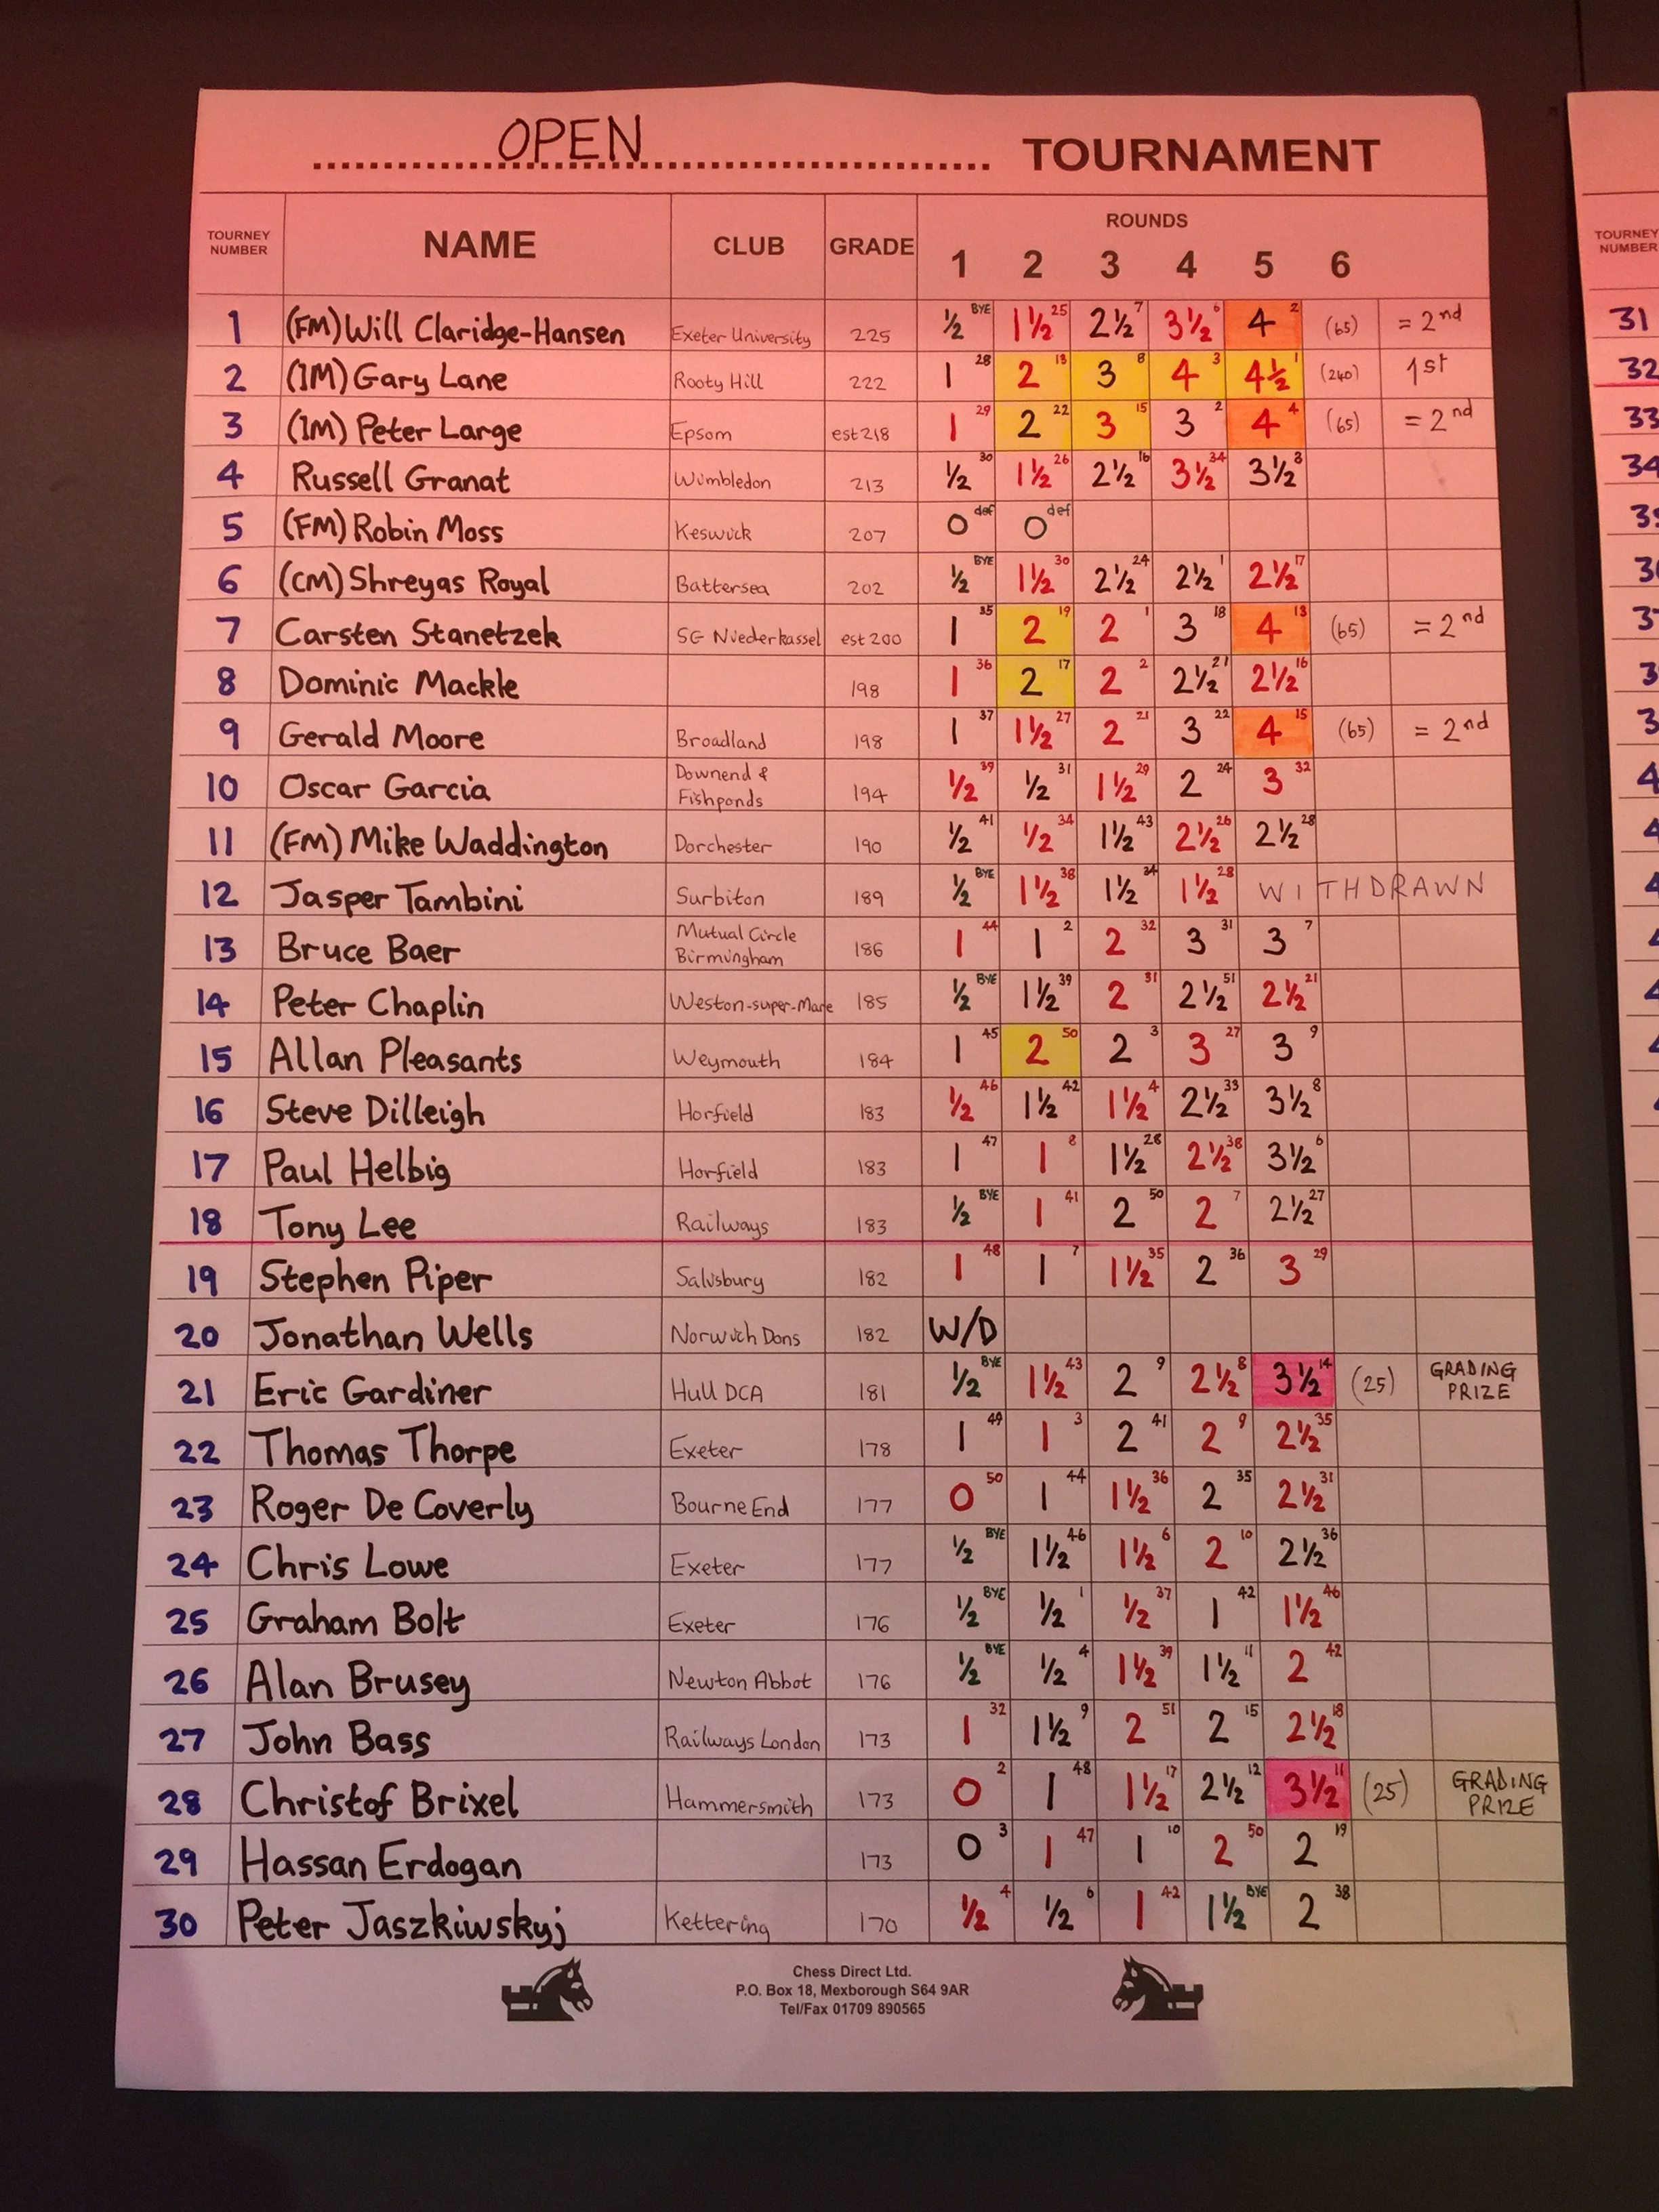 OPEN TOURNAMENT
TOURNEY NUMBER NAME CLUB GRADE ROUNDS 1 2 3 4 5 6
1 (FM) Will Claridge-Hansen Exeter University 225 ½ BYE 1½ 25 2½ 7 3½ 6 4 2 (65) = 2nd
2 (IM) Gary Lane Rooty Hill 222 1 28 2 13 3 8 4 3 4½ 1 (240) 1st
3 (IM) Peter Large Epsom est 218 1 29 2 22 3 15 3 2 4 4 (65) = 2nd
4 Russell Granat Wimbledon 213 ½ 30 1½ 26 2½ 16 3½ 34 3½ 3
5 (FM) Robin Moss Keswick 207 0 def 0 def
6 (CM) Shreyas Royal Battersea 202 ½ BYE 1½ 30 2½ 24 2½ 1 2½ 17
7 Carsten Stanetzek SG Niederkassel est 200 1 35 2 19 2 1 3 18 4 13 (65) = 2nd
8 Dominic Mackle 198 1 36 2 17 2 2 2½ 21 2½ 16
9 Gerald Moore Broadland 198 1 37 1½ 27 2 21 3 22 4 15 (65) = 2nd
10 Oscar Garcia Downend & Fishponds 194 ½ 39 ½ 31 1½ 29 2 24 3 32
11 (FM) Mike Waddington Dorchester 190 ½ 41 ½ 34 1½ 43 2½ 26 2½ 28
12 Jasper Tambini Surbiton 189 ½ BYE 1½ 38 1½ 34 1½ 28 WITHDRAWN
13 Bruce Baer Mutual Circle Birmingham 186 1 44 1 2 2 32 3 31 3 7
14 Peter Chaplin Weston-super-Mare 185 ½ BYE 1½ 39 2 31 2½ 51 2½ 21
15 Allan Pleasants Weymouth 184 1 45 2 50 2 3 3 27 3 9
16 Steve Dilleigh Horfield 183 ½ 46 1½ 42 1½ 4 2½ 33 3½ 8
17 Paul Helbig Horfield 183 1 47 1 8 1½ 28 2½ 38 3½ 6
18 Tony Lee Railways 183 ½ BYE 1 41 2 50 2 7 2½ 27
19 Stephen Piper Salisbury 182 1 48 1 7 1½ 35 2 36 3 29
20 Jonathan Wells Norwich Dons 182 W/D
21 Eric Gardiner Hull DCA 181 ½ BYE 1½ 43 2 9 2½ 8 3½ 14 (25) GRADING PRIZE
22 Thomas Thorpe Exeter 178 1 49 1 3 2 41 2 9 2½ 35
23 Roger De Coverly Bourne End 177 0 50 1 44 1½ 36 2 35 2½ 31
24 Chris Lowe Exeter 177 ½ BYE 1½ 46 1½ 6 2 10 2½ 36
25 Graham Bolt Exeter 176 ½ BYE ½ 1 ½ 37 1 42 1½ 46
26 Alan Brusey Newton Abbot 176 ½ BYE ½ 4 1½ 39 1½ 11 2 42
27 John Bass Railways London 173 1 32 1½ 9 2 51 2 15 2½ 18
28 Christof Brixel Hammersmith 173 0 2 1 48 1½ 17 2½ 12 3½ 11 (25) GRADING PRIZE
29 Hassan Erdogan 173 0 3 1 47 1 10 2 50 2 19
30 Peter Jaszkiwskyj Kettering 170 ½ 4 ½ 6 1 42 1½ BYE 2 38
Chess Direct Ltd.
P.O. Box 18, Mexborough S64 9AR
Tel/Fax 01709 890565
TOURNEY NUMBER
31
32
33
34